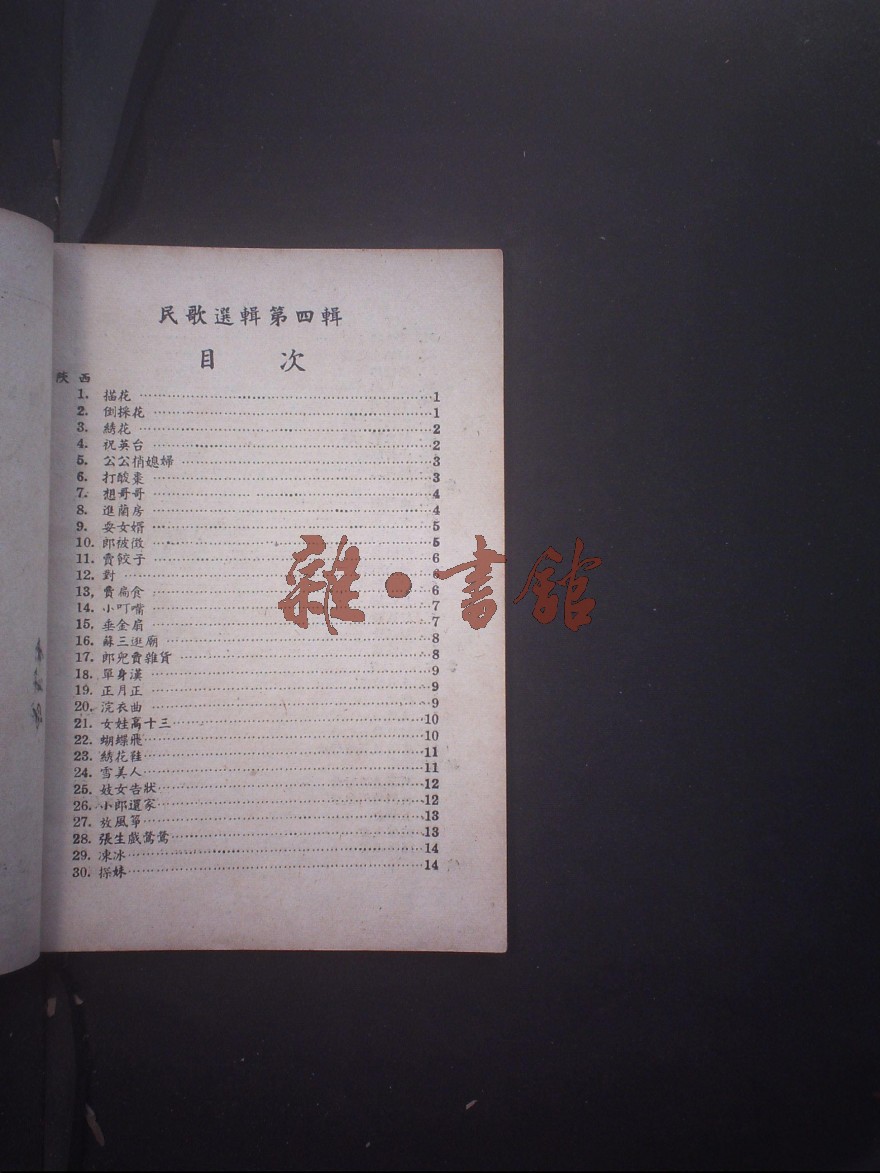 民歌選輯第四輯
目 次
陝 西
1. 描花 1
2. 倒採花 1
3. 綉花 2
4. 祝英台 2
5. 公公悄媳婦 3
6. 打酸棗 3
7. 想哥哥 4
8. 進蘭房 4
9. 耍女婿 5
10. 郎被徵 5
11. 賣餃子 6
12. 對 6
13, 賣扁食 6
14. 小叮嘴 7
15. 垂金扇 7
16. 蘇三逛廟 8
17. 郎兒賣雜貨 8
18. 單身漢 9
19. 正月正 9
20. 浣衣曲 9
21. 女娃高十三 10
22. 蝴蝶飛 10
23. 綉花鞋 11
24. 雪美人 11
25. 妓女告狀 12
26. 小郎還家 12
27. 放風箏 13
28. 張生戲鶯鶯 13
29. 凍冰 14
30. 探妹 14
雜·書館